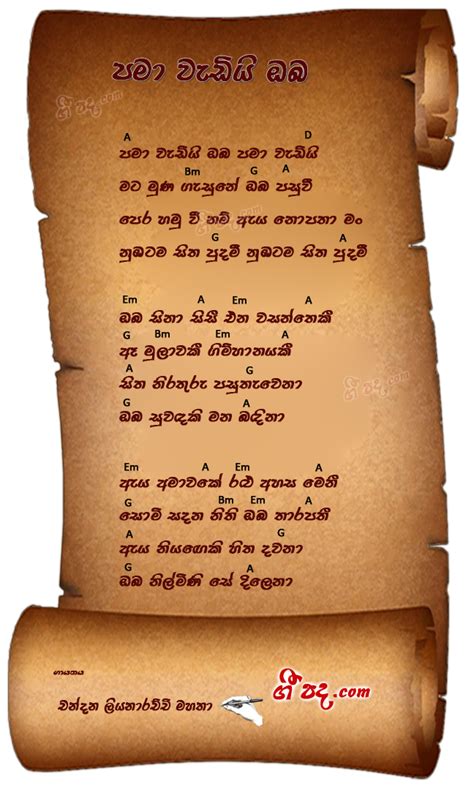 පමා වැඩියි ඔබ
ගී පද.com
A D
පමා වැඩියි ඔබ පමා වැඩියි
Bm G A
මට මුණ ගැසුනේ ඔබ පසුවී
පෙර හමු වී නම් ඇය නොපතා මං
G A
නුඹටම සිත පුදමි නුඹටම සිත පුදමි
Em A Em A
ඔබ සිනා සිසී එන වසන්තෙකී
G Bm Em A
ඈ මුලාවකී ගිම්හානයකී
A G
සිත නිරතුරු පසුතැවෙනා
G A
ඔබ සුවඳකි මන බඳිනා
ගී පද.com
Em A Em A
ඇය අමාවකේ රෑ අහස මෙනී
G Bm Em A
සොමි සඳන නිති ඔබ තාරපතී
A G
ඇය නියඟෙකි හිත දවනා
G A
ඔබ නිල්මිණි සේ දිලෙනා
ගායනය
චන්දන ලියනාරච්චි මහතා
ගී පද.com